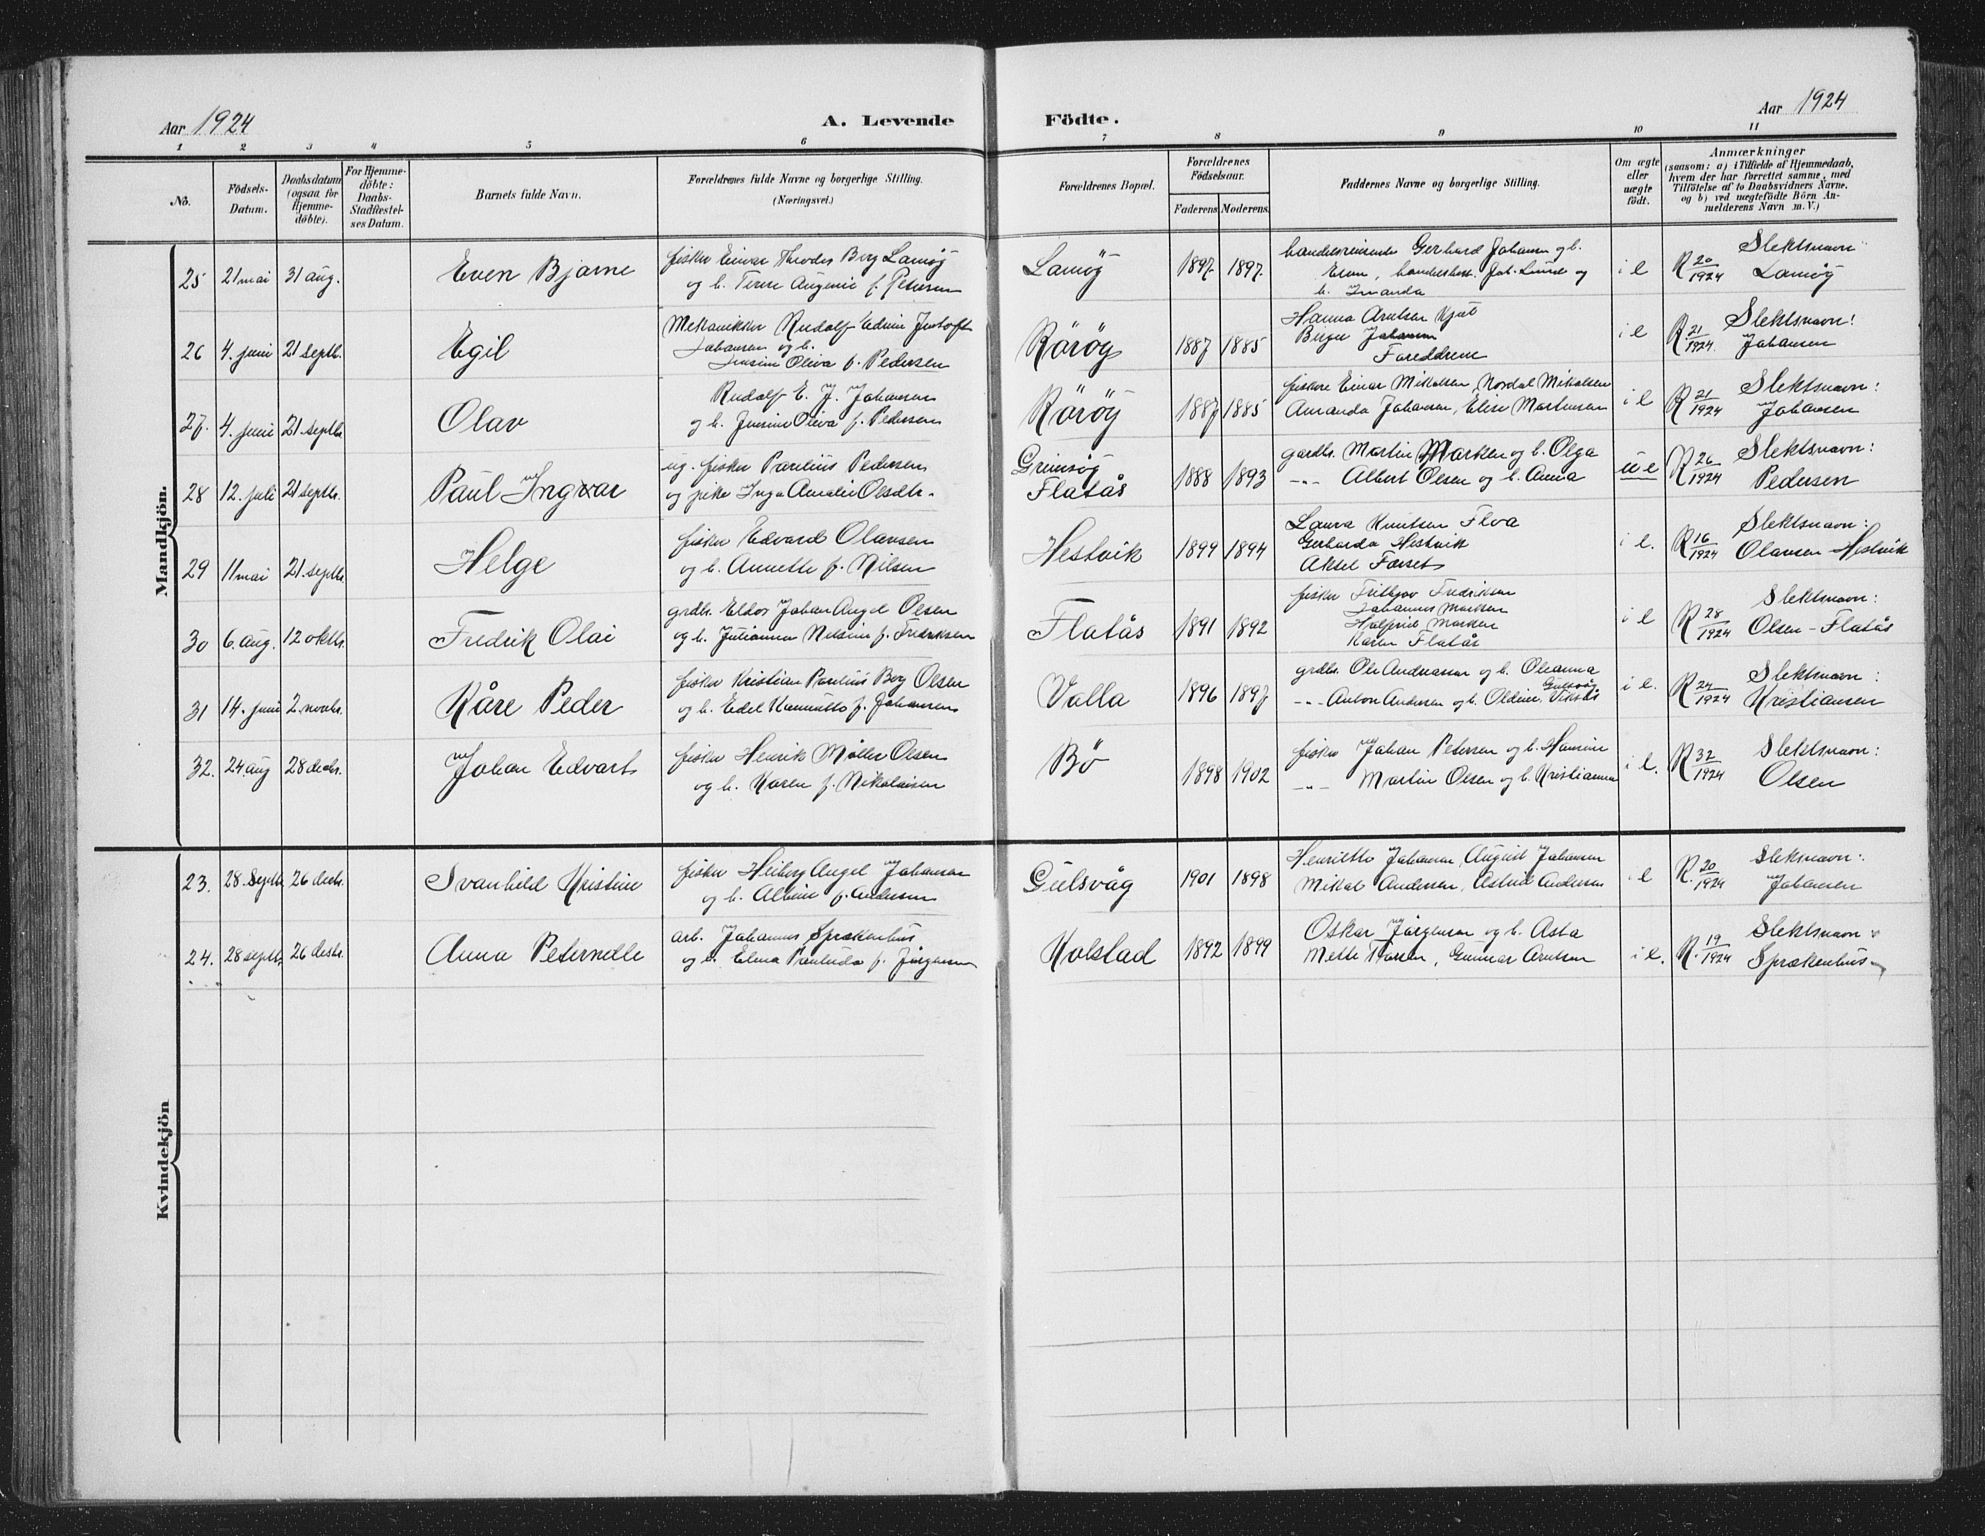 Aar 1924
A. Levende
Födte.
Aar 1924
1 2 3 4 5 6 7 8 9 10 11
No.
Födsels-
Datum.
Daabsdatum
(ogsaa for
Hjemme-
döbte).
For Hjemme-
döbte:
Daabs-
Stadfæstel-
ses Datum.
Barnets fulde Navn.
Forældrenes fulde Navne og borgerlige Stilling.
(Næringsvei.)
Forældrenes Bopæl.
Forældrenes
Födselsaar.
Faderens. Moderens.
Faddernes Navne og borgerlige Stilling.
Om ægte
eller
uægte
födt.
Anmærkninger
(saasom: a) i Tilfælde af Hjemmedaab,
hvem der har forrettet samme, med
Tilföielse af to Daabsvidners Navne.
og b) ved uægtefödte Börn An-
melderens Navn m.V.)
Mandkjön.
25 21 mai 31 aug.
Even Bjarne
fisker Einar Theodor Berg Lamøy
og h. Terese Augenie f. Petersen
Lamöy
1897 1897
handelsreisende Gerhard Johansen og h.
Emma, handelsbest. Joh. Lund og
h. Imanda
i e
R 20/1924
Slektsnavn
Lamöy
26 4. juni 21 septb.
Egil
Mekaniker Rudolf Edvin Justoft
Johansen og h.
Jensine Oliva f. Pedersen
Röröy
1887 1885
Hanna Arntsen Kjul
Birger Johansen
Foreldrene
i e
R 21/1924
Slektsnavn:
Johansen
27. 4. juni 21. septb.
Olav
Rudolf E. J. Johansen
og h. Jensine Oliva f. Pedersen
Röröy
1887 1885
fiskere Einar Mikalsen, Nordal Mikalsen
Amanda Johansen, Elise Martinsen
i e
R 21/1924
Slektsnavn:
Johansen
28 12. juli 21 septbr.
Paul Ingvar
ug. fisker Paulius Pedersen
og pike Inga Amalie Olsdtr.
Grimsöy
Flatås
1888 1893
gardbr. Martin Marksen og h. Olga
-"- Albert Olsen og h. Anna
u e
R 26/1924
Slektsnavn:
Pedersen
29 11 mai 21. septbr.
Helge
fisker Edvard Olavsen
og h. Annette f. Nilsen
Hestvik
1899 1894
Laura Knutsen Flva
Gerharda Hestvik
Aksel Forset
i e.
R 16/1924
Slektsnavn:
Olavsen-Hestvik
30 6. aug. 12 oktb.
Fredrik Olai
grdbr. Eldor Johan Angel Olsen
og h. Julianna Nilsine f. Fredriksen
Flatås
1891 1892
fisker Fritjov Fredriksen
Johannes Marksen
Halfrid Marksen
Karen Flatås
i e
R 28/1924
Slektsnavn:
Olsen-Flatås
31 14. juni 2. novbr.
Kåre Peder
fisker Kristian Paulius Berg Olsen
og h. Edel f. Johansen
Valla
1896 1897
grdbr. Ole Andreassen og h. Oleanna
Gulsvåg
-"- Anton Andersen og h. Oldine, Viksås
i e.
R 24/1924
Slektsnavn:
Kristiansen
32. 24 aug 28 decbr.
Johan Edvart
fisker Henrik Møller Olsen
og h. Karen f. Nikolaisen
Bö
1898 1902
fisker Johan Petersen og h. Hansine
-"- Martin Olsen og h. Kristianna
i e.
R 32/1924
Slektsnavn:
Olsen
Kvindekjön
23. 28. septb 26 decbr.
Svanhild Kristine
fisker Heiberg Angel Johansen
og h. Albine f. Andersen
Gulsvåg
1901 1898
Henriette Johansen, August Johansen
Mikal Andersen, Astrid Andersen
i e
R. 20/1924
Slektsnavn:
Johansen
24. 28 septb. 26 decbr.
Anna Peternelle
arb. Johannes Sprækenhus
og h. Elena Paulinda f. Jörgensen
Kolstad
1892 1899
Oskar Jörgensen og h. Asta
Mette Thorsen, Gunnar Arntsen
i e.
R. 19/1924
Slektsnavn:
Sprækenhus